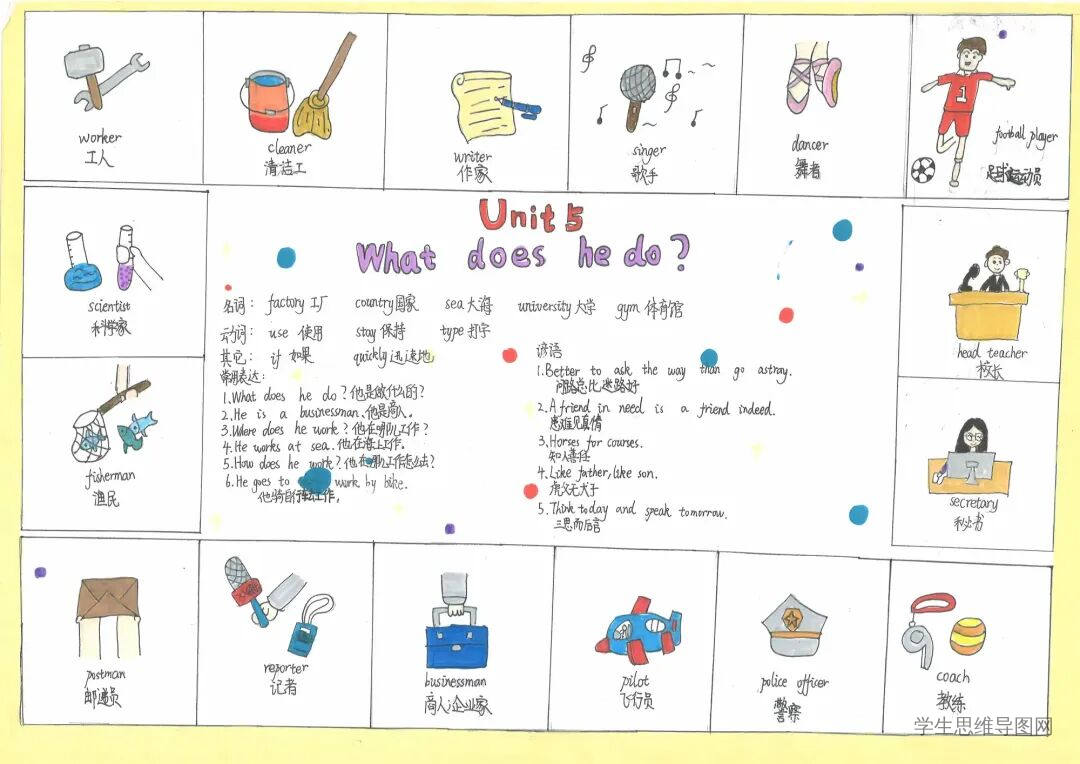 worker
工人
cleaner
清洁工
writer
作家
singer
歌手
dancer
舞者
football player
足球运动员
scientist
科学家
fisherman
渔民
Unit 5
What does he do?
名词: factory 工厂 country 国家 sea 大海 university 大学 gym 体育馆
动词: use 使用 stay 保持 type 打字
其它: if 如果 quickly 迅速地
常用表达:
1.What does he do?他是做什么的?
2.He is a businessman.他是商人。
3.Where does he work?他在哪儿工作?
4.He works at sea.他在海上工作。
5.How does he work?他在哪儿工作怎么去?
6.He goes to work by bike.
他骑自行车去工作。
谚语
1.Better to ask the way than go astray.
问路总比迷路好
2.A friend in need is a friend indeed.
患难见真情
3.Horses for courses.
知人善任
4.Like father,like son.
虎父无犬子
5.Think today and speak tomorrow.
三思而后言
head teacher
校长
secretary
秘书
postman
邮递员
reporter
记者
businessman
商人;企业家
pilot
飞行员
police officer
警察
coach
教练
学生思维导图网